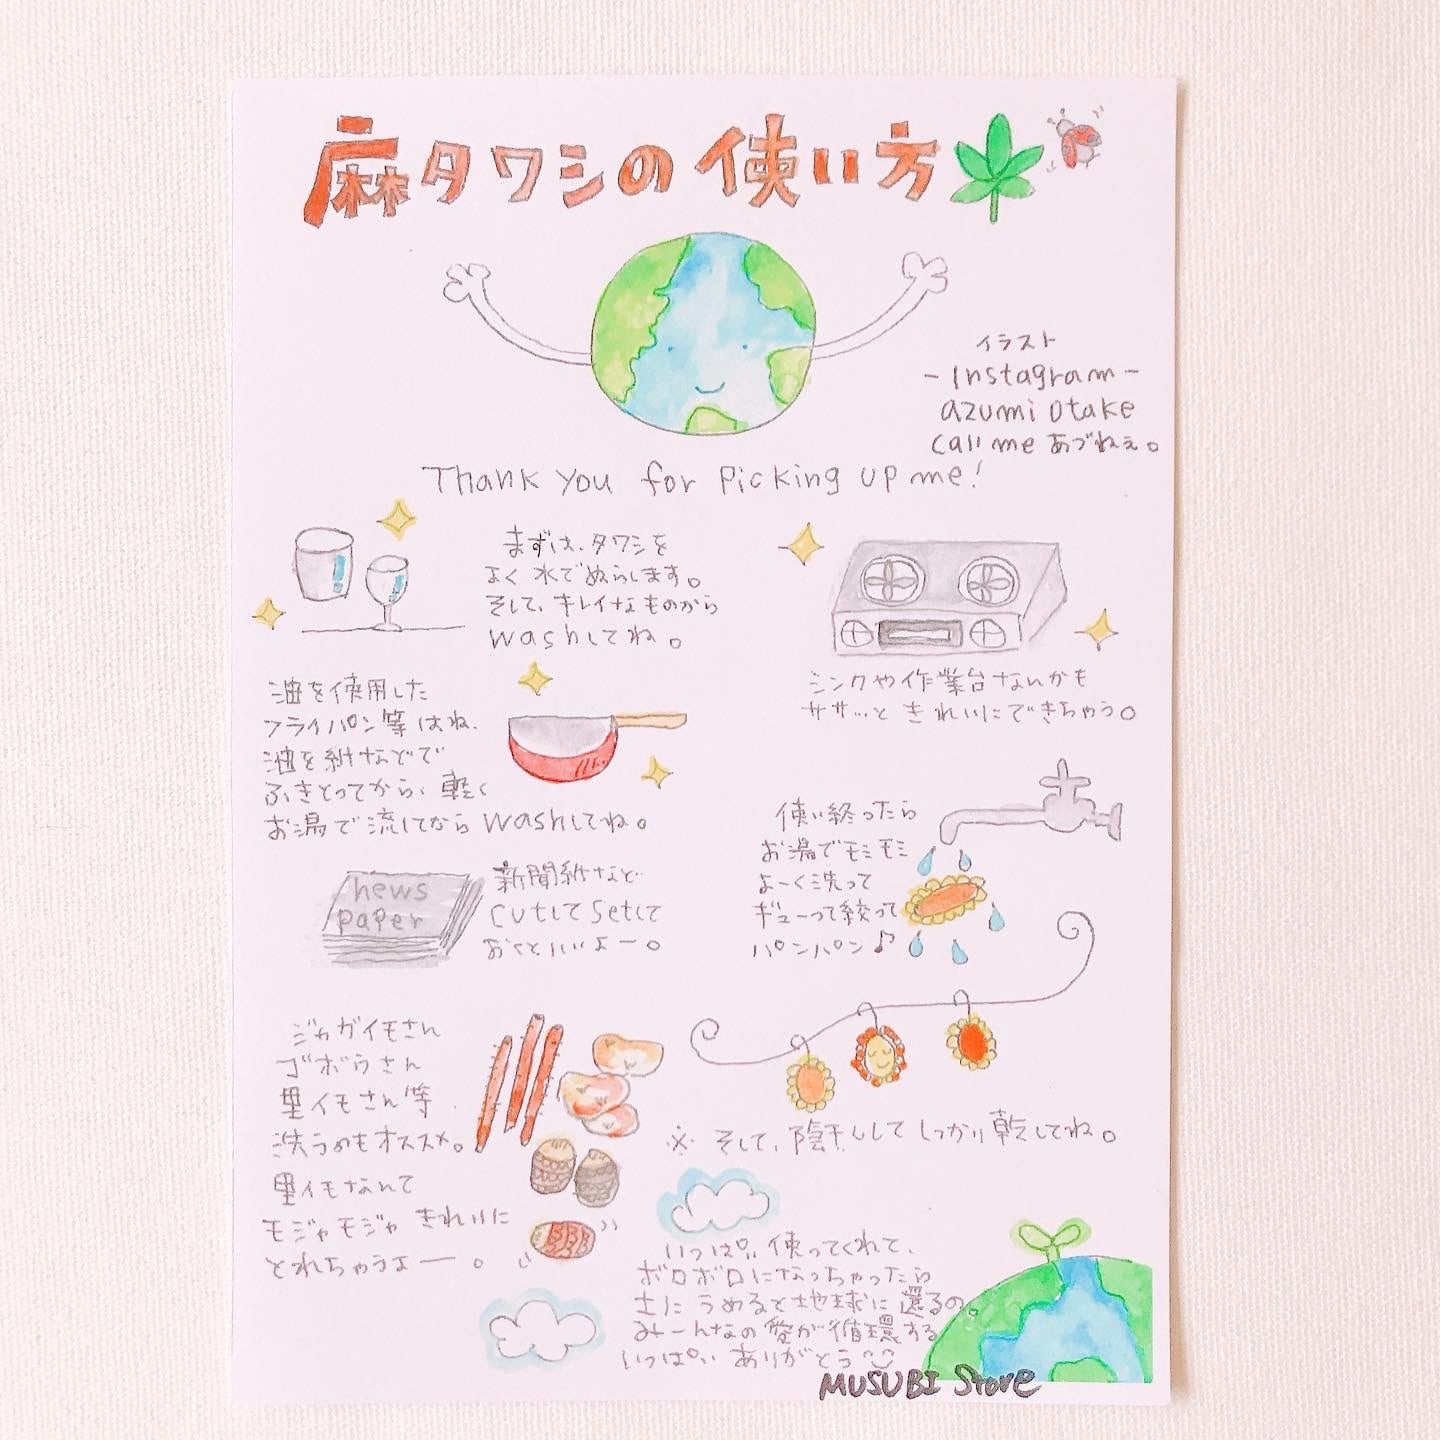 麻タワシの使い方
イラスト
-Instagram-
azumi otake
call me あづねぇ。
Thank you for picking up me!
まずは、タワシを
よく水でぬらします。
そして、キレイなものから
washしてね。
シンクや作業台なんかも
ササッと きれいにできちゃう。
油を使用した
フライパン等はね、
油を紙などで
ふきとってから、軽く
お湯で流してからwashしてね。
使い終ったら
お湯でモミモミ
よーく洗って
ギューって絞って
パンパン♪
news
paper
新聞紙など
cutしてsetして
おくといいよー。
ジャガイモさん
ゴボウさん
里イモさん等
洗うのもオススメ。
里イモなんて
モジャモジャ きれいに
とれちゃうよー。
※ そして、陰干ししてしっかり乾してね。
いっぱい使ってくれて、
ボロボロになっちゃったら
土にうめると地球に還るの。
みーんなの愛が循環する
いっぱいありがとう
MUSUBI Store